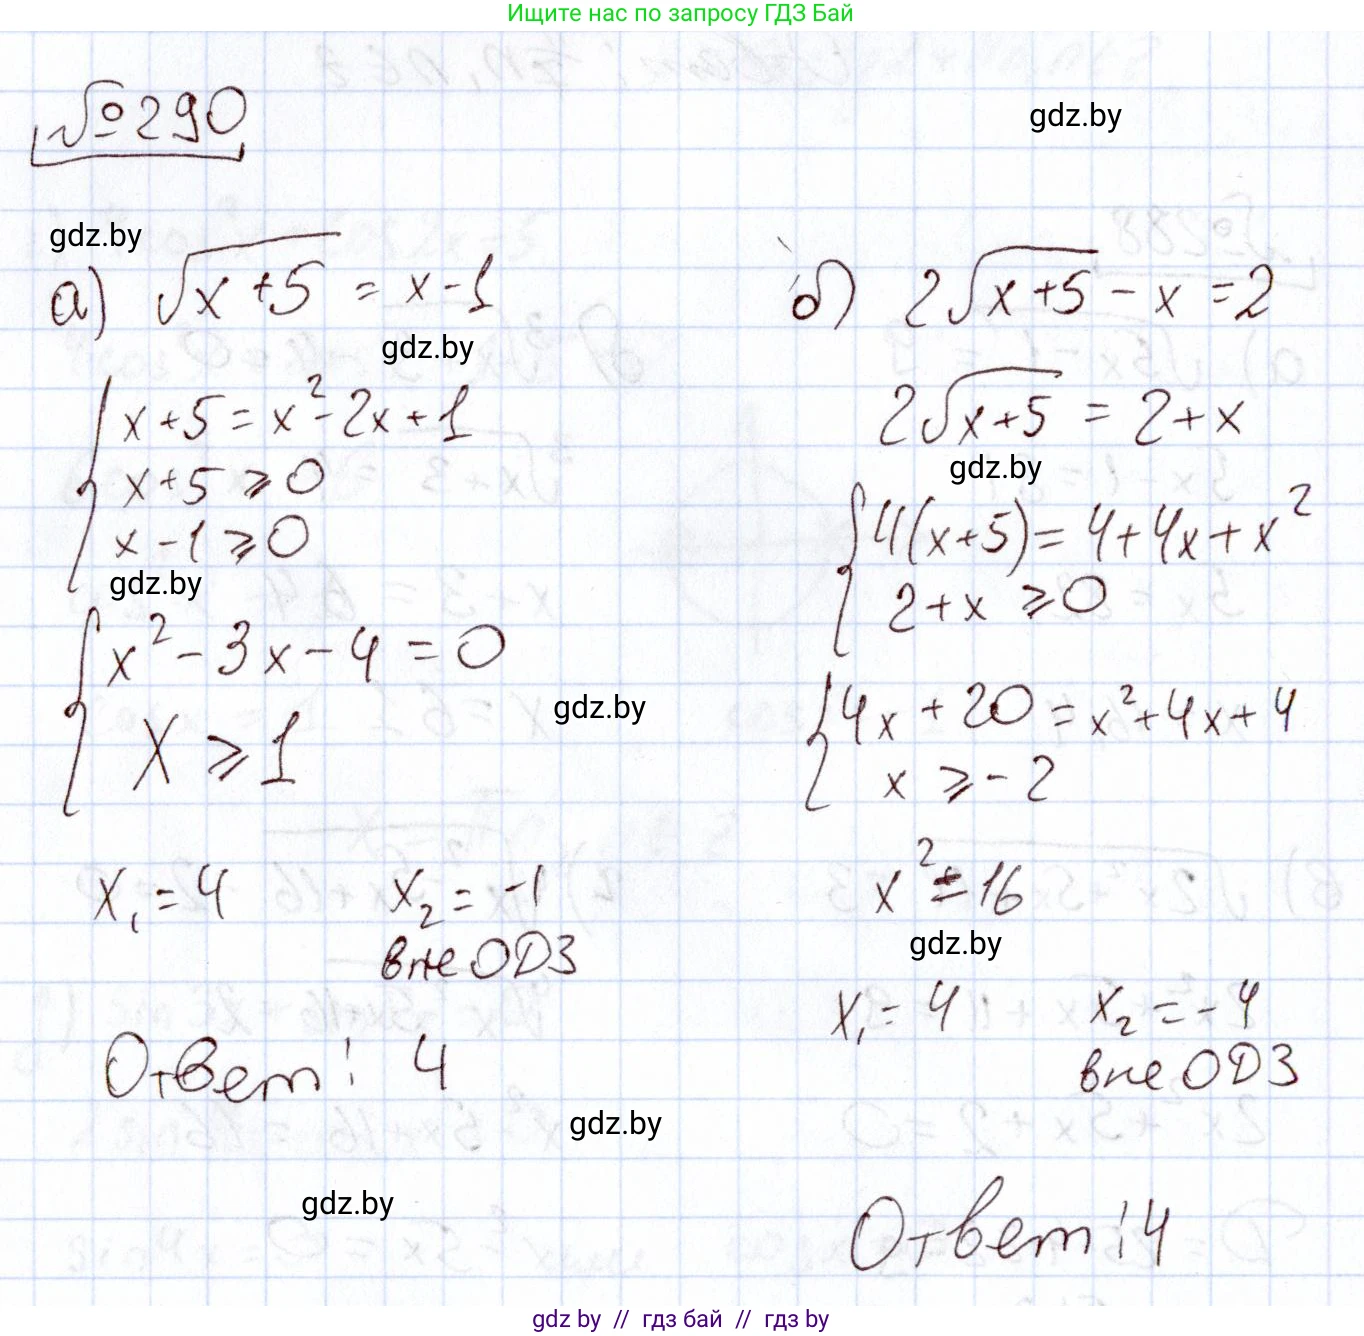 Ищите нас по запросу ГДЗ Бай
№290
gdz.by
gdz.by
а) √(x+5) = x-1
gdz.by
{ x+5 = x²-2x+1
x+5 ⩾ 0
x-1 ⩾ 0
gdz.by
{ x²-3x-4 = 0
x ⩾ 1
gdz.by
x₁ = 4 x₂ = -1
вне ОДЗ
Ответ: 4
gdz.by
gdz.by
б) 2√(x+5) - x = 2
2√(x+5) = 2+x
gdz.by
{ 4(x+5) = 4+4x+x²
2+x ⩾ 0
{ 4x+20 = x²+4x+4
x ⩾ -2
x² = 16
gdz.by
x₁ = 4 x₂ = -4
вне ОДЗ
Ответ: 4
gdz by // гдз бай // гдз by